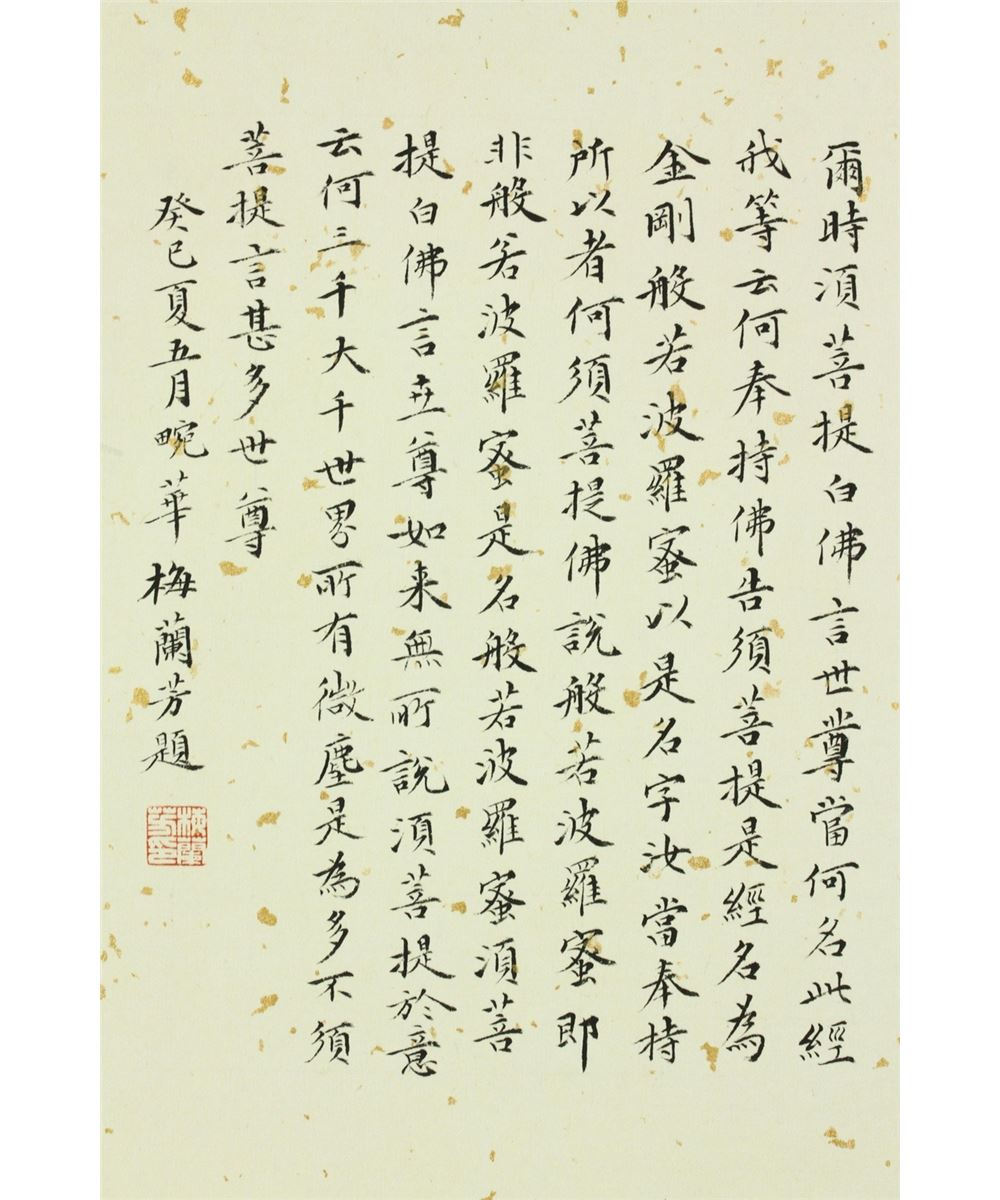 爾時須菩提白佛言世尊當何名此經
我等云何奉持佛告須菩提是經名為
金剛般若波羅蜜以是名字汝當奉持
所以者何須菩提佛說般若波羅蜜即
非般若波羅蜜是名般若波羅蜜須菩
提白佛言世尊如来無所說須菩提於意
云何三千大千世界所有微塵是為多不須
菩提言甚多世尊
癸巳夏五月畹華梅蘭芳題
梅蘭芳印